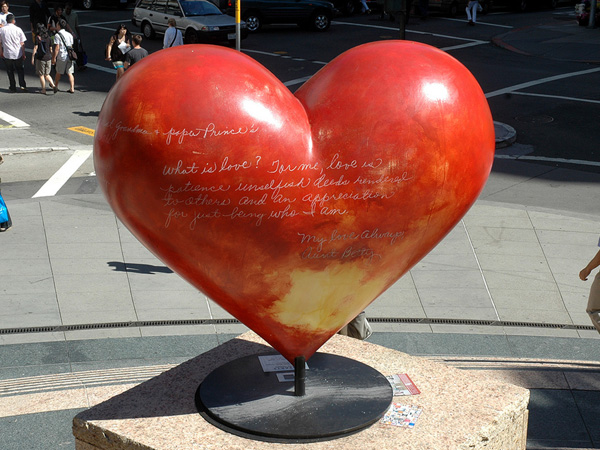 Grandma + papa Prince's
What is love? For me, love is
patience unselfish deeds rendered
to others and an appreciation
for just being who I am.
My love Always
Aunt Betty